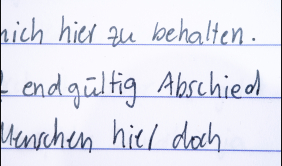 mich hier zu behalten.
endgültig Abschied
Menschen hier doch